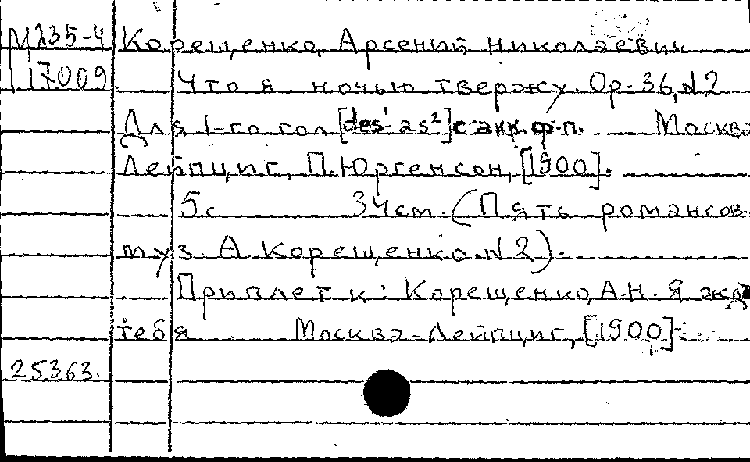 М235-4 Корещенко, Арсений Николаевич
17009 Что я ночью твержу. Ор. 36, N2
Для 1-го гол [des¹-as²] с акк. ф-п. Москва
Лейпциг, П. Юргенсон, [1900].
5с 34см. (Пять романсов
муз. А. Корещенко. N2).
Приплет к: Корещенко, А.Н. Я жд
тебя Москва-Лейпциг, [1900]
25363.